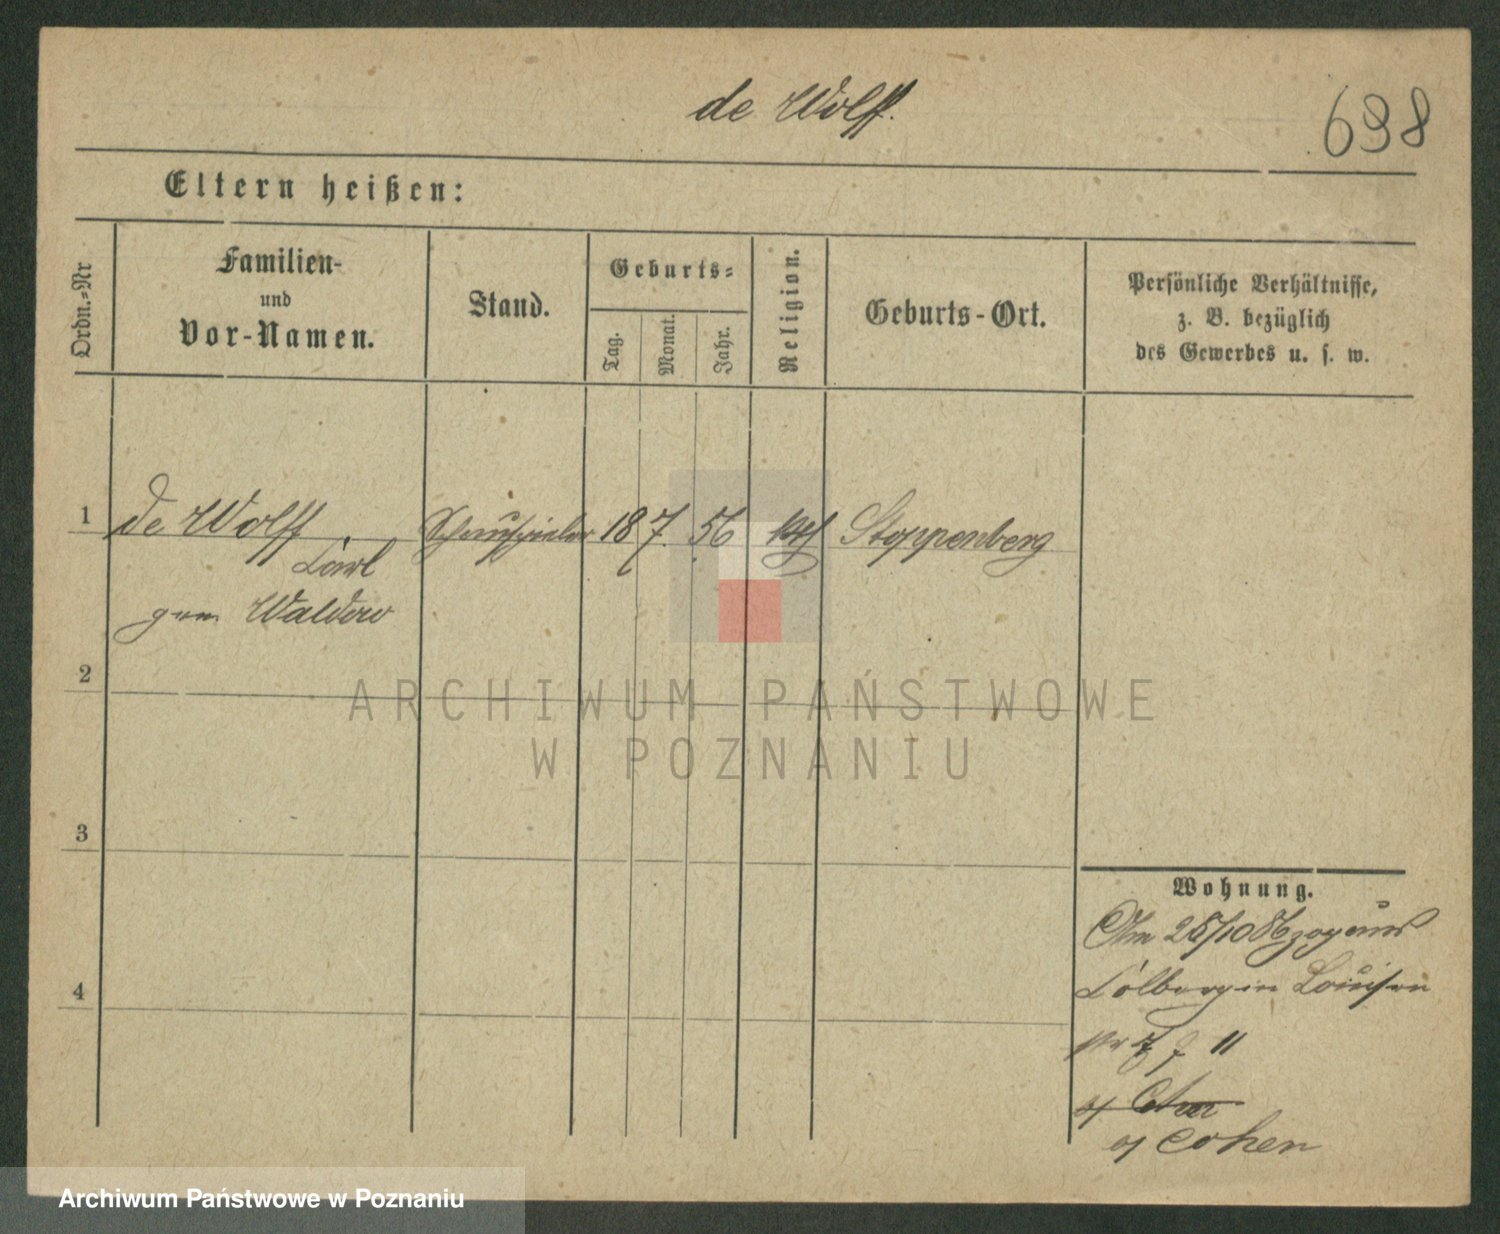 de Wolff.
698
Eltern heißen:
Ordn.-Nr
Familien-
und
Vor-Namen.
Stand.
Geburts-
Tag.
Monat.
Jahr.
Religion.
Geburts-Ort.
Persönliche Verhältnisse,
z. B. bezüglich
des Gewerbes u. s. w.
1 de Wolff, Schauspieler 18 7. 56 kth Stoppenberg
Carl
gen. Waldow
2
ARCHIWUM PAŃSTWOWE
W POZNANIU
3
4
Wohnung.
Am 25/10 86 zog aus
Colberg in Louisen
11
b/ Cohen
Archiwum Państwowe w Poznaniu